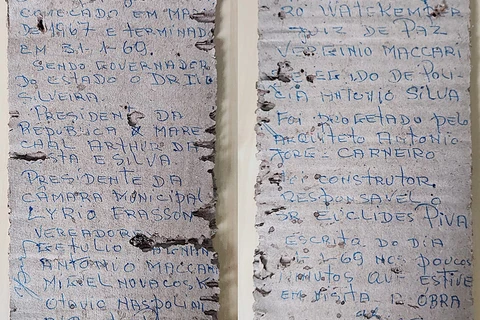 COMEÇADO EM
DE 1967 E TERMINADO
EM 31-1-69.
SENDO GOVERNADOR
DO ESTADO O DR IVO
SILVEIRA.
PRESIDENTE DA
REPÚBLICA MARE
CAAL ARTHUR DA
STA E SILVA
PRESIDENTE DA
CAMARA MUNICIPAL
CYRIO FRASSON
VEREADOR
GETULIO
ANTONIO MACCARI
MIGUEL NOVACOSK
OTAVIO NASPOLINI
RO WATEKEMPER
JUIZ DE PAZ
VERGINIO MACCARI
DE POLI-
CIA ANTONIO SILVA
FOI PROJETADO PELO
ARQUITETO ANTONIO
JORGE CARNEIRO
CONSTRUTOR
RESPONSAVEL O
SR EUCLIDES PIVA
ESCRITA DO DIA
1-69 NOS POUCOS
MINUTOS QUE ESTIVE
EM VISITA OBRA